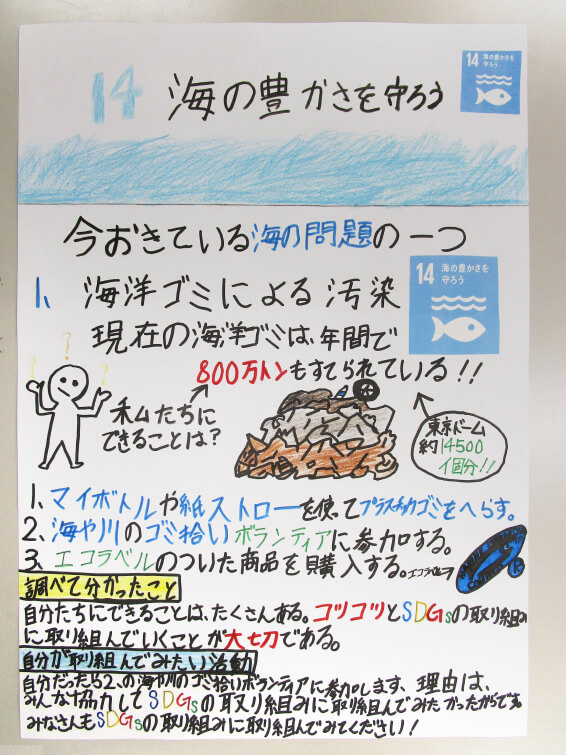 14 海の豊かさを守ろう
14 海の豊かさを
守ろう
今おきている海の問題の一つ
1、海洋ゴミによる汚染
14 海の豊かさを
守ろう
現在の海洋ゴミは、年間で
800万トンもすてられている!!
私たちに
できることは?
東京ドーム
約14500
個分!!
1、マイボトルや紙ストローを使ってプラスチックゴミをへらす。
2、海や川のゴミ拾いボランティアに参加する。
3、エコラベルのついた商品を購入する。エコラベル→
調べて分かったこと
自分たちにできることは、たくさんある。コツコツとSDGsの取り組み
に取り組んでいくことが大切である。
自分が取り組んでみたい活動
自分だったら2、の海や川のゴミ拾いボランティアに参加します、理由は、
みんな協力してSDGsの取り組みに取り組んでみたかったからです。
みなさんもSDGsの取り組みに取り組んでみてください!